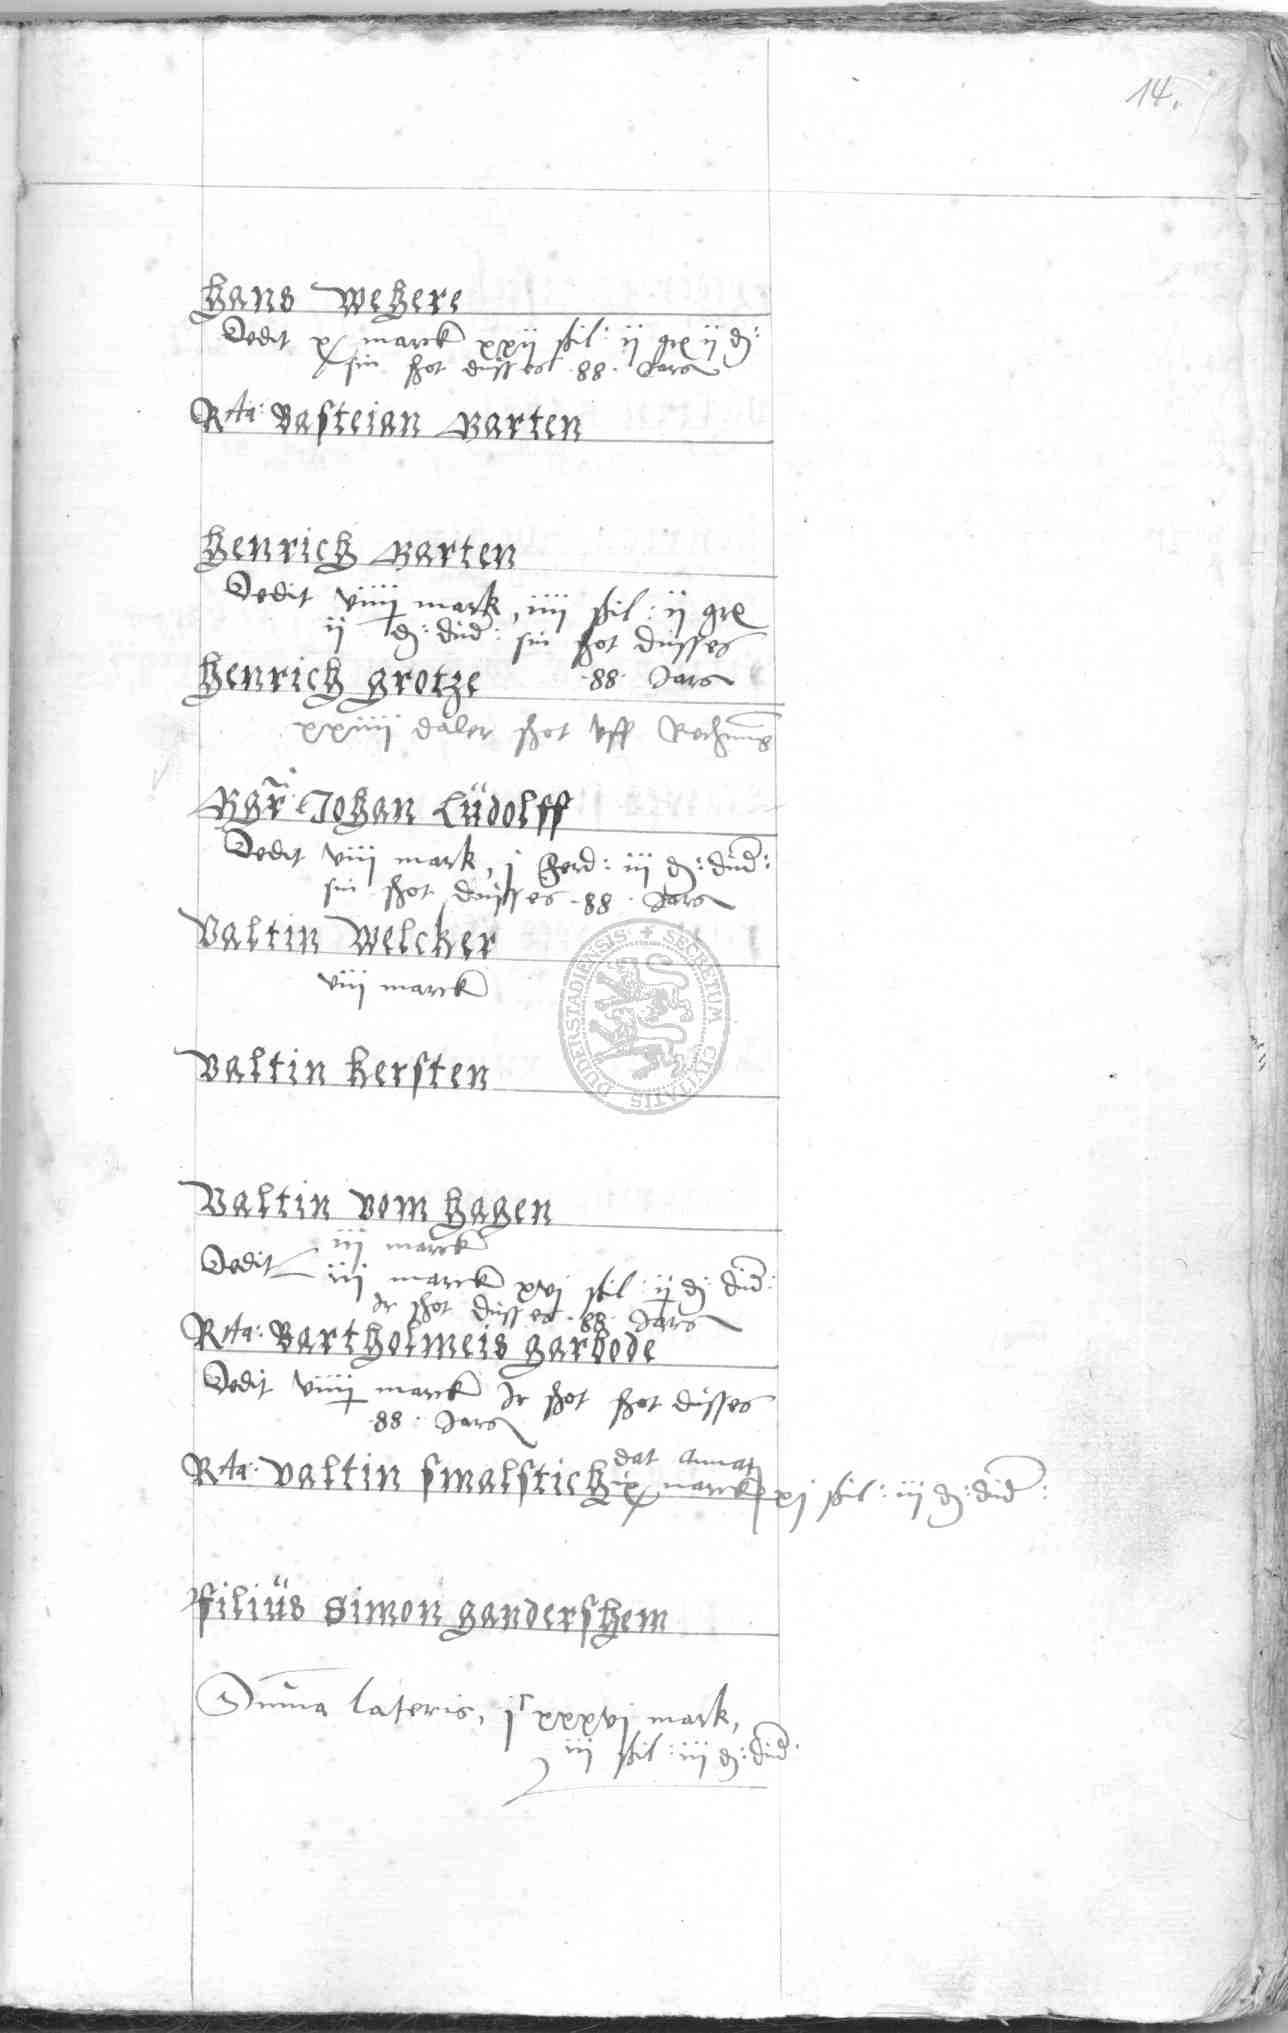 14.
Hans Wehere
Dedit x marck xxij ßil: ij gr ij d:
sin shot dusses .88. Jars
Rta: Basteian Barten
Henrich Barten
Dedit viiij mark, iiij ßil: ij gr
ij d: dud: sin shot dusses
.88. Jars
Henrich Grotze
xxiiij daler shot vff Rechnung
Bgr Johan Lüdolff
Dedit viij mark, j ferd: iij d: dud:
sin shot dusses .88. Jars
Valtin Welcker
viij marck
Valtin Kersten
Valtin vom Hagen
iij marck
Dedit iij marck xvj ßil: ij d: dud:
Jr shot dusses .88. Jars
Rta: Bartholmeis Garbode
Dedit viiij marck Jr shot shot dusses
.88. Jars
Rta: Valtin Smalstich dat
ix marck xj ßil: iij d: dud:
Filiüs Simon Gandershem
Suma lateris, jc xxxvj mark,
iij ßil: iij d: dud:
SECRETUM CIVITATIS DUDERSTADIENSIS